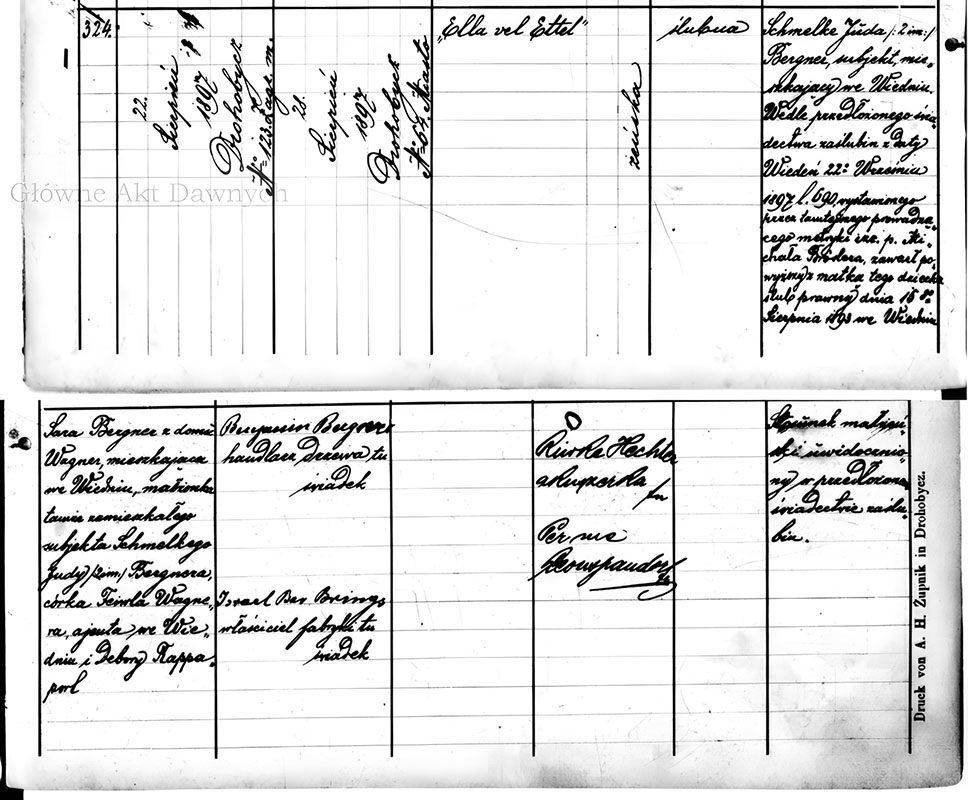 324.
22.
Sierpień
1897
Drohobycz
N= 123. Zagr. m.
28.
Sierpień
1897
Drohobycz
N= 54. Miasto
„Ella vel Ettel"
żeńska
ślubna
Schmelke Juda /: 2 im :/
Bergner, subjekt, mie„
szkający we Wiedniu.
Wedle przedłożonego świa„
dectwa zaślubin z daty
Wiedeń 22= Września
1897 l. 690, wystawionego
przez tamtejszego prowadzą„
cego metryki izr. p. Mi„
chała Brödera, zawarł po„
wyższy z matką tego dziecka
ślub prawny dnia 15
Sierpnia 1893 we Wiedniu
Główne Akt Dawnych
Sara Bergner z domu
Wagner, mieszkająca
we Wiedniu, małżonka
tamże zamieszkałego
subjekta Schmelkego
Judy /2 im/ Bergnera,
córka Feiwla Wagne„
ra, ajenta we Wie„
dniu i Debory Rappa„
port
Benjamin Bergner
handlarz drzewa tu
świadek
Israel Ber Brings
właściciel fabryki tu
świadek
Riwke Hechter
akuszerka
tu
Per me
Stosunek małżeń„
ski uwidocznio„
ny w przedłożonem
świadectwie zaślu„
bin.
Druck von A. H. Żupnik in Drohobycz.